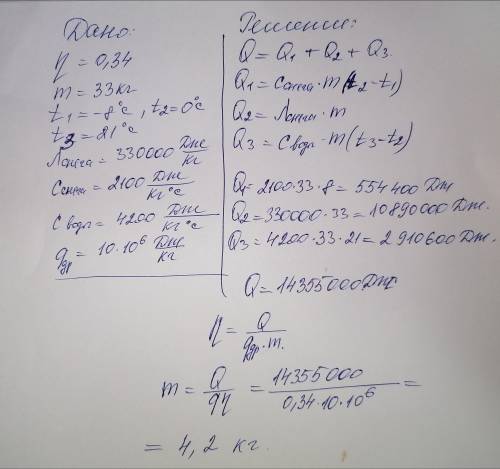 Дано:
η = 0,34
m = 33 кг
t₁ = -8°c, t₂ = 0°c
t₃ = 21°c
λ снега = 330000 Дж/кг
С снега = 2100 Дж/кг°с
С воды = 4200 Дж/кг°с
qдр = 10·10⁶ Дж/кг
Решение:
Q = Q₁ + Q₂ + Q₃.
Q₁ = Cснега·m(t₂-t₁)
Q₂ = λснега·m
Q₃ = С воды·m(t₃-t₂)
Q₁ = 2100·33·8 = 554 400 Дж
Q₂ = 330000·33 = 10 890 000 Дж.
Q₃ = 4200·33·21 = 2 910 600 Дж.
Q = 14355000 Дж
η = Q/qдр·m.
m = Q/qη = 14355000/0,34·10·10⁶ =
= 4,2 кг.